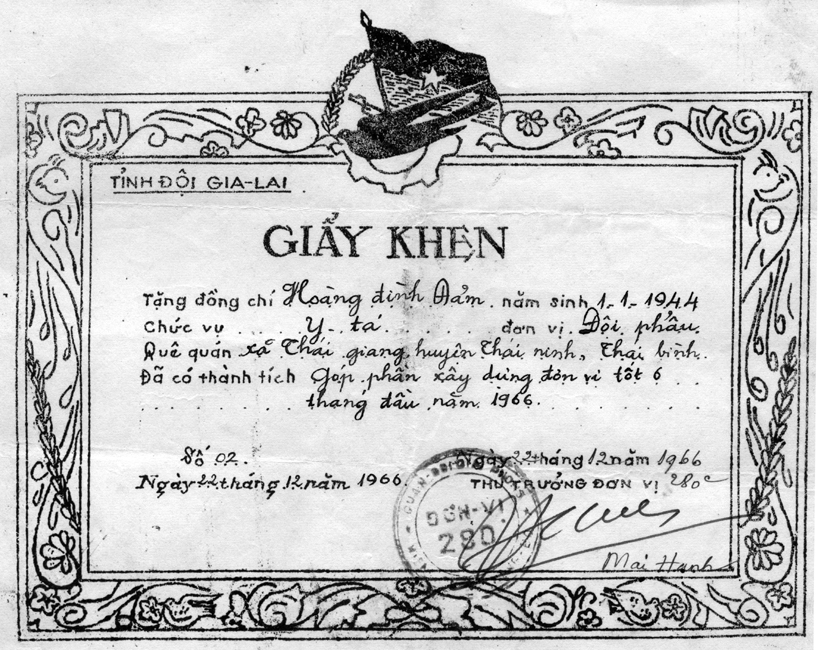 TỈNH ĐỘI GIA-LAI
GIẤY KHEN
Tặng đồng chí Hoàng đình Đảm năm sinh 1-1-1944
Chức vụ Y tá đơn vị Đội phẫu
Quê quán xã Thái giang huyện thái ninh, Thái bình
Đã có thành tích Góp phần xây dựng đơn vị tốt 6
tháng đầu năm 1966
Số 02.
Ngày 22 tháng 12 năm 1966
Ngày 22 tháng 12 năm 1966
THỦ TRƯỞNG ĐƠN VỊ 280
ĐƠN-VỊ
280
Mai Hanh